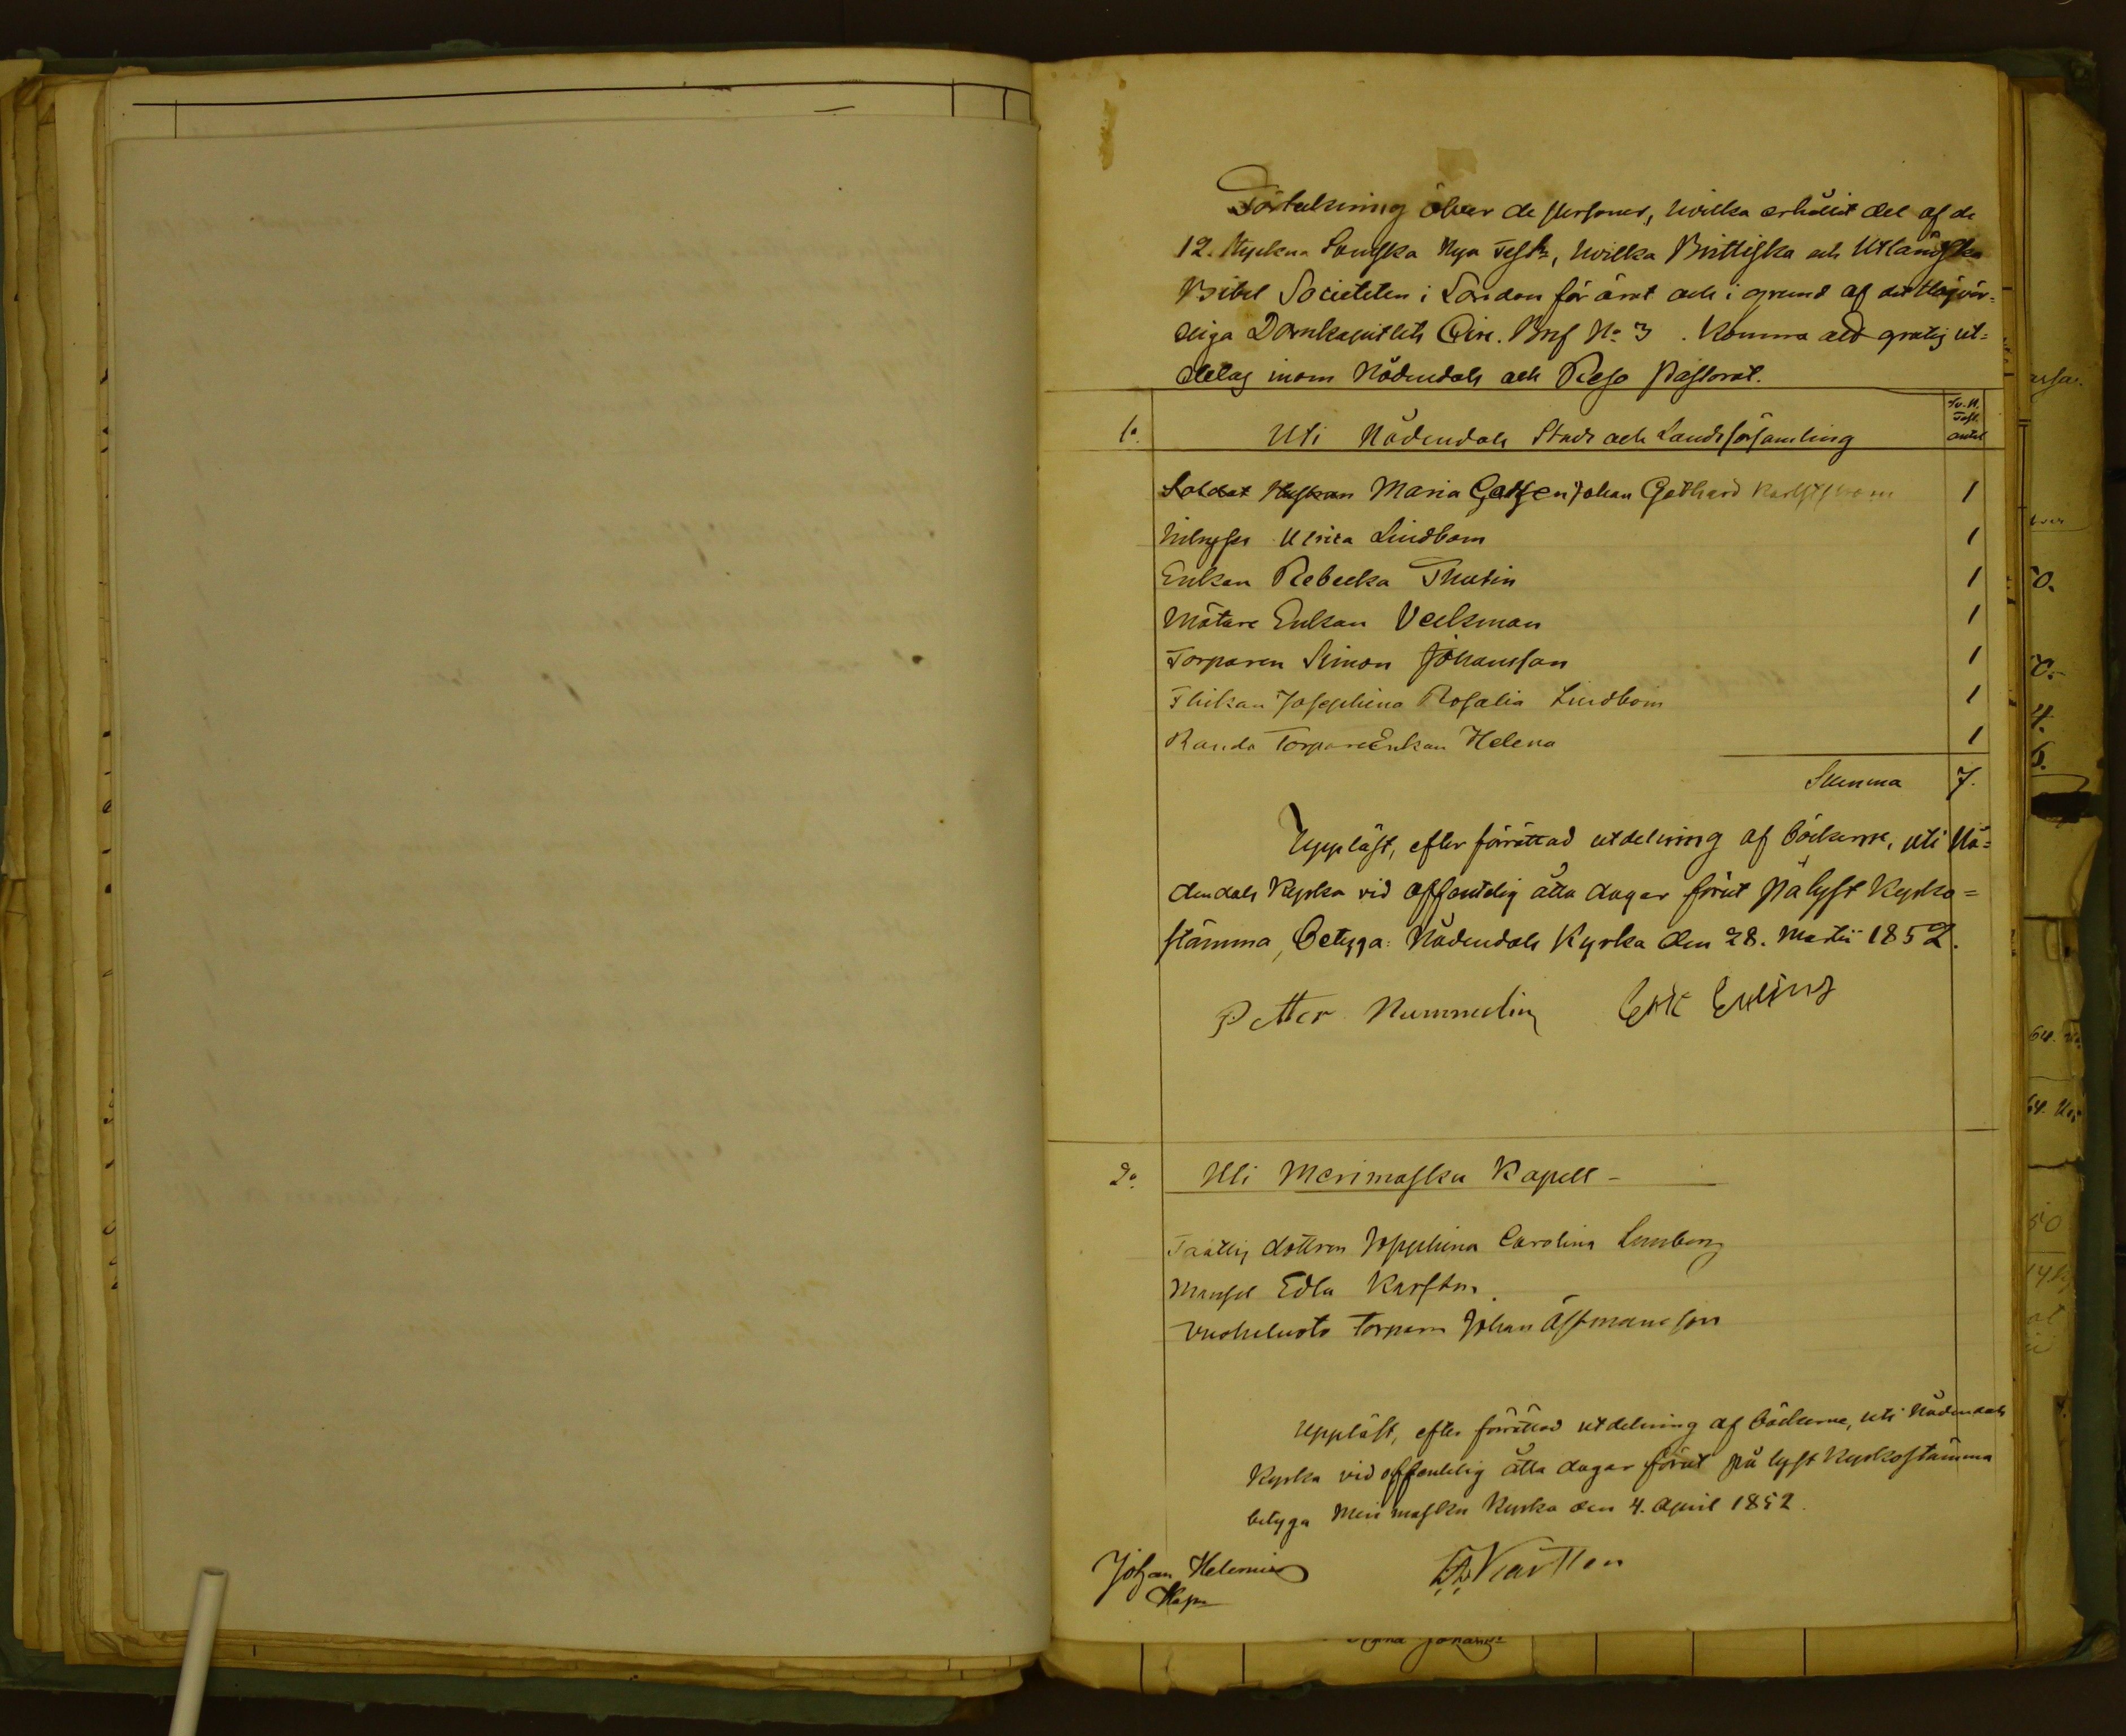 Förtekning öfver de personer, hvilka erhållit del af de
12. stycken Svenska Nya Testr, hvilka Brittiska och Utländska
Bibel Societeten i London för ärat och i grund af det Högvör-
diga Domkapitlets Circ. Bref No 3. komma att gratis ut-
delas inom Nådendals och Reso Pastorat.
1o. Uti Nådendals Stads och Landsförsamling
Sv. N. Test. antal
Soldat Hustrun Maria Johan Gothard Karlström 1
Ulrica Lindbom 1
Enkan Rebecka Thulin 1
Mätare Enkan Veckman 1
Torparen Simon Johansson 1
Flickan Josephina Rosalia Lindbom 1
Randa Torpare Enkan Helena 1
Summa 7.
Uppläst, efter förrättad utdelning af böckerne, uti Nå-
dendals Kyrka vid offentelig åtta dagar förut pålyst Kyrko-
stämma, Betyga: Nådendals Kyrka den 28. Martii 1852.
Petter Nummelin Erik
2o. Uti Merimasku Kapell -
dottren Josephina Carolina Lemberg
Mamsel Edla Karsten.
Torparen Johan Åstmansson
Uppläst, efter förrättad utdelning af böckerne, uti Nådendals
Kyrka vid offentelig åtta dagar förut pålyst Kyrkostämma
betyga Merimasku Kyrka den 4. April 1852.
Johan Helenius
Kapn